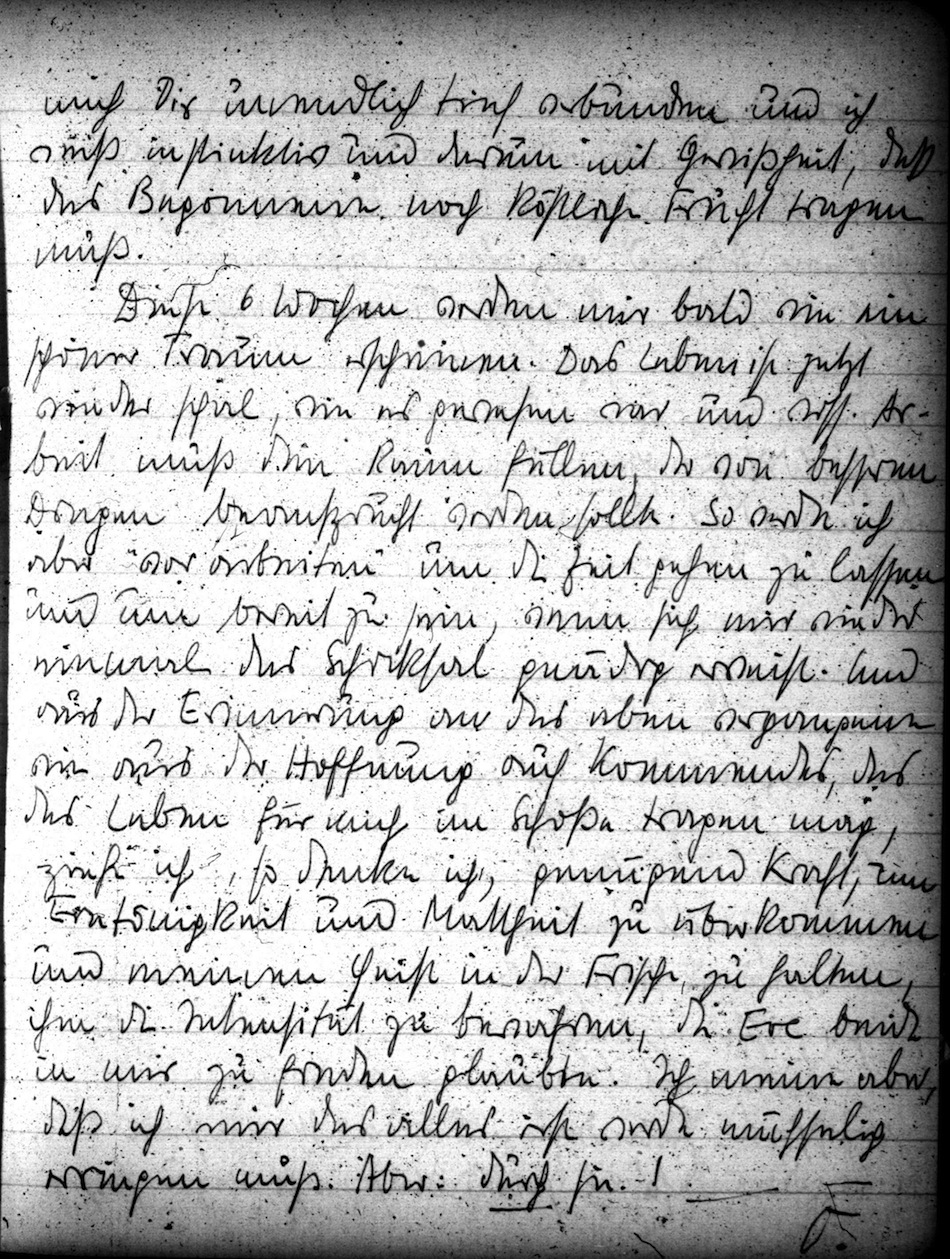 mich Dir unendlich tief verbunden und ich
weiß instinktiv und darum mit Gewißheit, daß
das Begonnene noch köstliche Frucht tragen
muß.
Diese 6 Wochen werden mir bald wie ein
schöner Traum erscheinen. Das Leben ist jetzt
wieder schal, wie es gewesen war und erst. Ar-
beit muß den Raum füllen, der von besseren
Dingen beansprucht werden sollte. So werde ich
aber "vorarbeiten" um die Zeit gehen zu lassen
und um bereit zu sein, wenn sich mir wieder
einmal das Schicksal gnädig erweist. Und
aus der Erinnerung an das eben vergangene
wie aus der Hoffnung auf Kommendes, das
das Leben für mich im Schoße tragen mag,
ziehe ich, so denke ich, genügend Kraft, um
Eintönigkeit und Mattheit zu überkommen
und meinen Geist in der Frische zu halten,
ihm die Intensität zu bewahren, die Ere beide
in mir zu finden glaubten. Ich meine aber,
daß ich mir das alles erst werde mühselig
erringen muß. Aber: durch sie!
F.